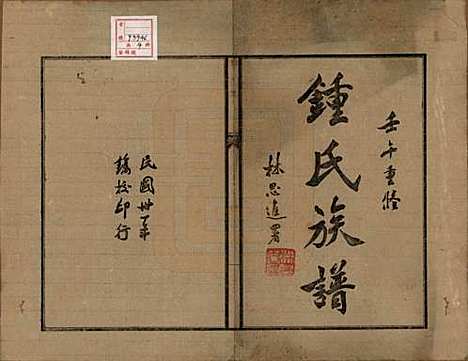 壬午重修
鍾氏族譜
林思進署
民國卅一年
鎸校印行